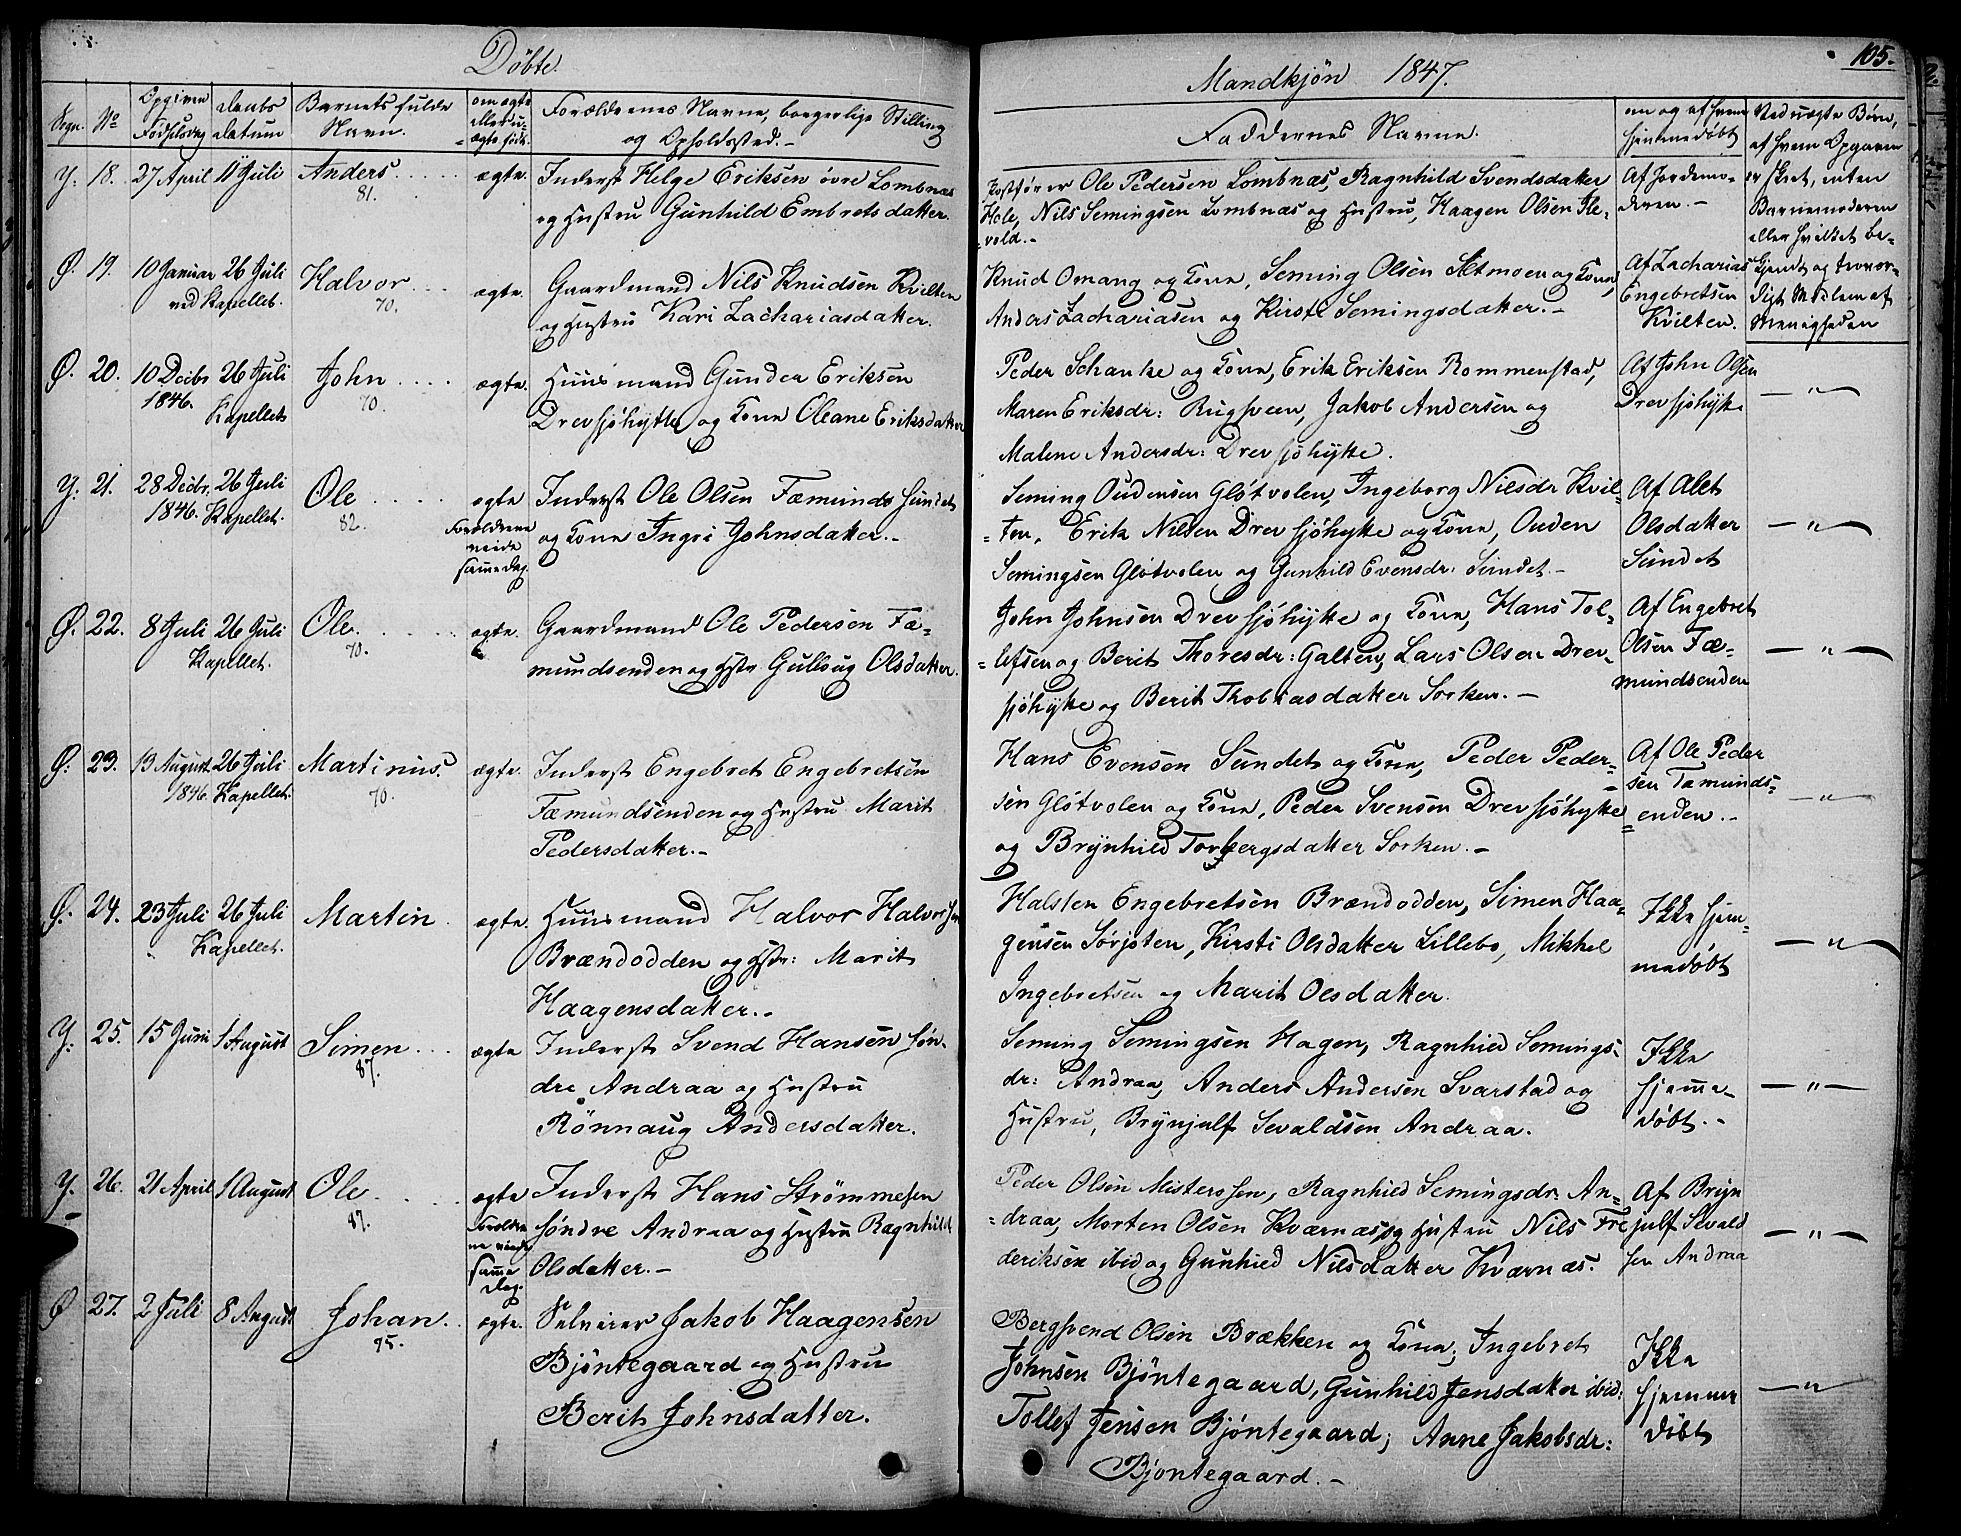 Döbte.
Mandkjön 1847.
105.
Sogn.
No
Opgiven Födselsdag
Daabs datum
Barnets fulde Navn.
om ægte eller uægte född.
Forældrenes Navne, borgerlige Stilling
og Opholdssted.-
Faddernes Navne.
om og af hvem hjemmedøbt
Ved uægte Børn,
af hvem Opgaven
er skeet, enten
Barnemoderen
eller hvilket be-
kjendt og trovær-
digt Medlem af
Menigheden
Y. 18. 27 April 11 Juli Anders. 81. ægte. Inderst Helge Eriksen övre Lombnæs
og Hustru Gunhild Embretsdatter.
Postförer Ole Pedersen Lombnæs, Ragnhild Svendsdatter
Hole, Nils Semingsen Lombnæs og Hustru, Haagen Olsen Ile-
vold.-
Af Jordemo-
deren.-
Ø. 19. 10 Januar 26 Juli Halvor 70. ægte. Gaardmand Nils Knudsen Kvilten
ved Kapellet.
og Hustru Kari Zachariasdatter.
Knud Omang og Kone, Seming Olsen Setmoen og Kone,
Anders Zachariasen og Kirsti Semingsdatter.-
Af Zacharias
Engebretsen
Kvilten.
Ø. 20. 10 Decbr 1846. 26 Juli Kapellet John 70. ægte. Huusmand Gunder Eriksen
Drevsjöhytte og Kone Oleane Eriksdatter
Peder Schanke og Kone, Erik Eriksen Rommenstad,
Maren Eriksdr: Rugsveen, Jakob Andersen og
Malene Andersdr: Drevsjöhytte.
Af John Olsen
Drevsjöhytte
— " —
Y: 21. 28 Decbr. 1846. 26 Juli Kapellet. Ole 82. ægte Inderst Ole Olsen Fæmundssundet
Forældrene
viede
samme Dag.
og Kone Ingri Johnsdatter.-
Seming Oudensen Glötvolen, Ingeborg Nilsdr Kvil-
-ten, Erik Nilsen Drevsjöhytte og Kone, Ouden
Semingsen Glötvolen og Gunhild Evensdr: Sundet.-
Af Alet
Olsdatter
Sundet
— " —
Ø. 22. 8 Juli 26 Juli Kapellet. Ole. 70. ægte. Gaardmand Ole Pedersen Fæ-
mundsenden og Hstr Gullaug Olsdatter.
John Johnsen Drevsjöhytte og Kone, Hans Tol-
-lefsen og Berit Thoresdr: Galten, Lars Olsen Drev-
sjöhytte og Berit Thobiasdatter Sorken.-
Af Engebret
Olsen Fæ-
mundsenden
— " —
Ø: 23. 13 August 1846. 26 Juli Kapellet. Martinus. 70. ægte. Inderst Engebret Engebretsen
Fæmundsenden og Hustru Marit
Pedersdatter.-
Hans Evensen Sundet og Kone, Peder Peder-
sen Glötvolen og Kone, Peder Svensen Drevsjöhytte
og Brynhild Torbergsdatter Sorken.-
Af Ole Peder
sen Fæmunds-
enden.-
— " —
Ø. 24. 23 Juli 26 Juli Kapellet. Martin ægte. Huusmand Halvor Halvorsen
Brændodden og Hstr: Marit
Haagensdatter.-
Halsten Engebretsen Brændodden, Simen Haa-
gensen Sørjoten, Kirsti Olsdatter Lillebo, Mikkel
Ingebretsen og Marit Olsdatter.
Ikke hjem-
medöbt
— " —
Y. 25. 15 Juni 1 August Simen 87. ægte Inderst Svend Hansen Sön-
dre Andraa og Hustru
Rönnaug Andersdatter.
Seming Semingsen Hagen, Ragnhild Semings-
dr: Andraa, Anders Andersen Svarstad og
Hustru, Brynjulf Sevaldsen Andraa.
Ikke
hjemme-
döbt.-
— " —
Y. 26. 21 April 1 August Ole 87. ægte Inderst Hans Strömmesen
Forældre
ne viede
samme
Dag.
söndre Andraa og Hustru Ragnhild
Olsdatter.-
Peder Olsen Misterssen, Ragnhild Semingsdr. An-
-draa, Morten Olsen Kværnæs og Hustru Nils Fre
deriksen ibid og Gunhild Nilsdatter Kværnæs.
Af Bryn
julf Sevald
sen Andraa
— " —
Ø 27. 2 Juli 8 August Johan. 95. ægte. Selveier Jakob Haagensen
Bjöntegaard og Hustru
Berit Johnsdatter.
Bergsvend Olsen Brækken og Kone, Ingebret
Johnsen Bjöntegaard, Gunhild Jensdatter ibid:
Tollef Jensen Bjöntegaard, Anne Jakobsdr:
Bjöntegaard.-
Ikke
hjemme
döbt
— " —